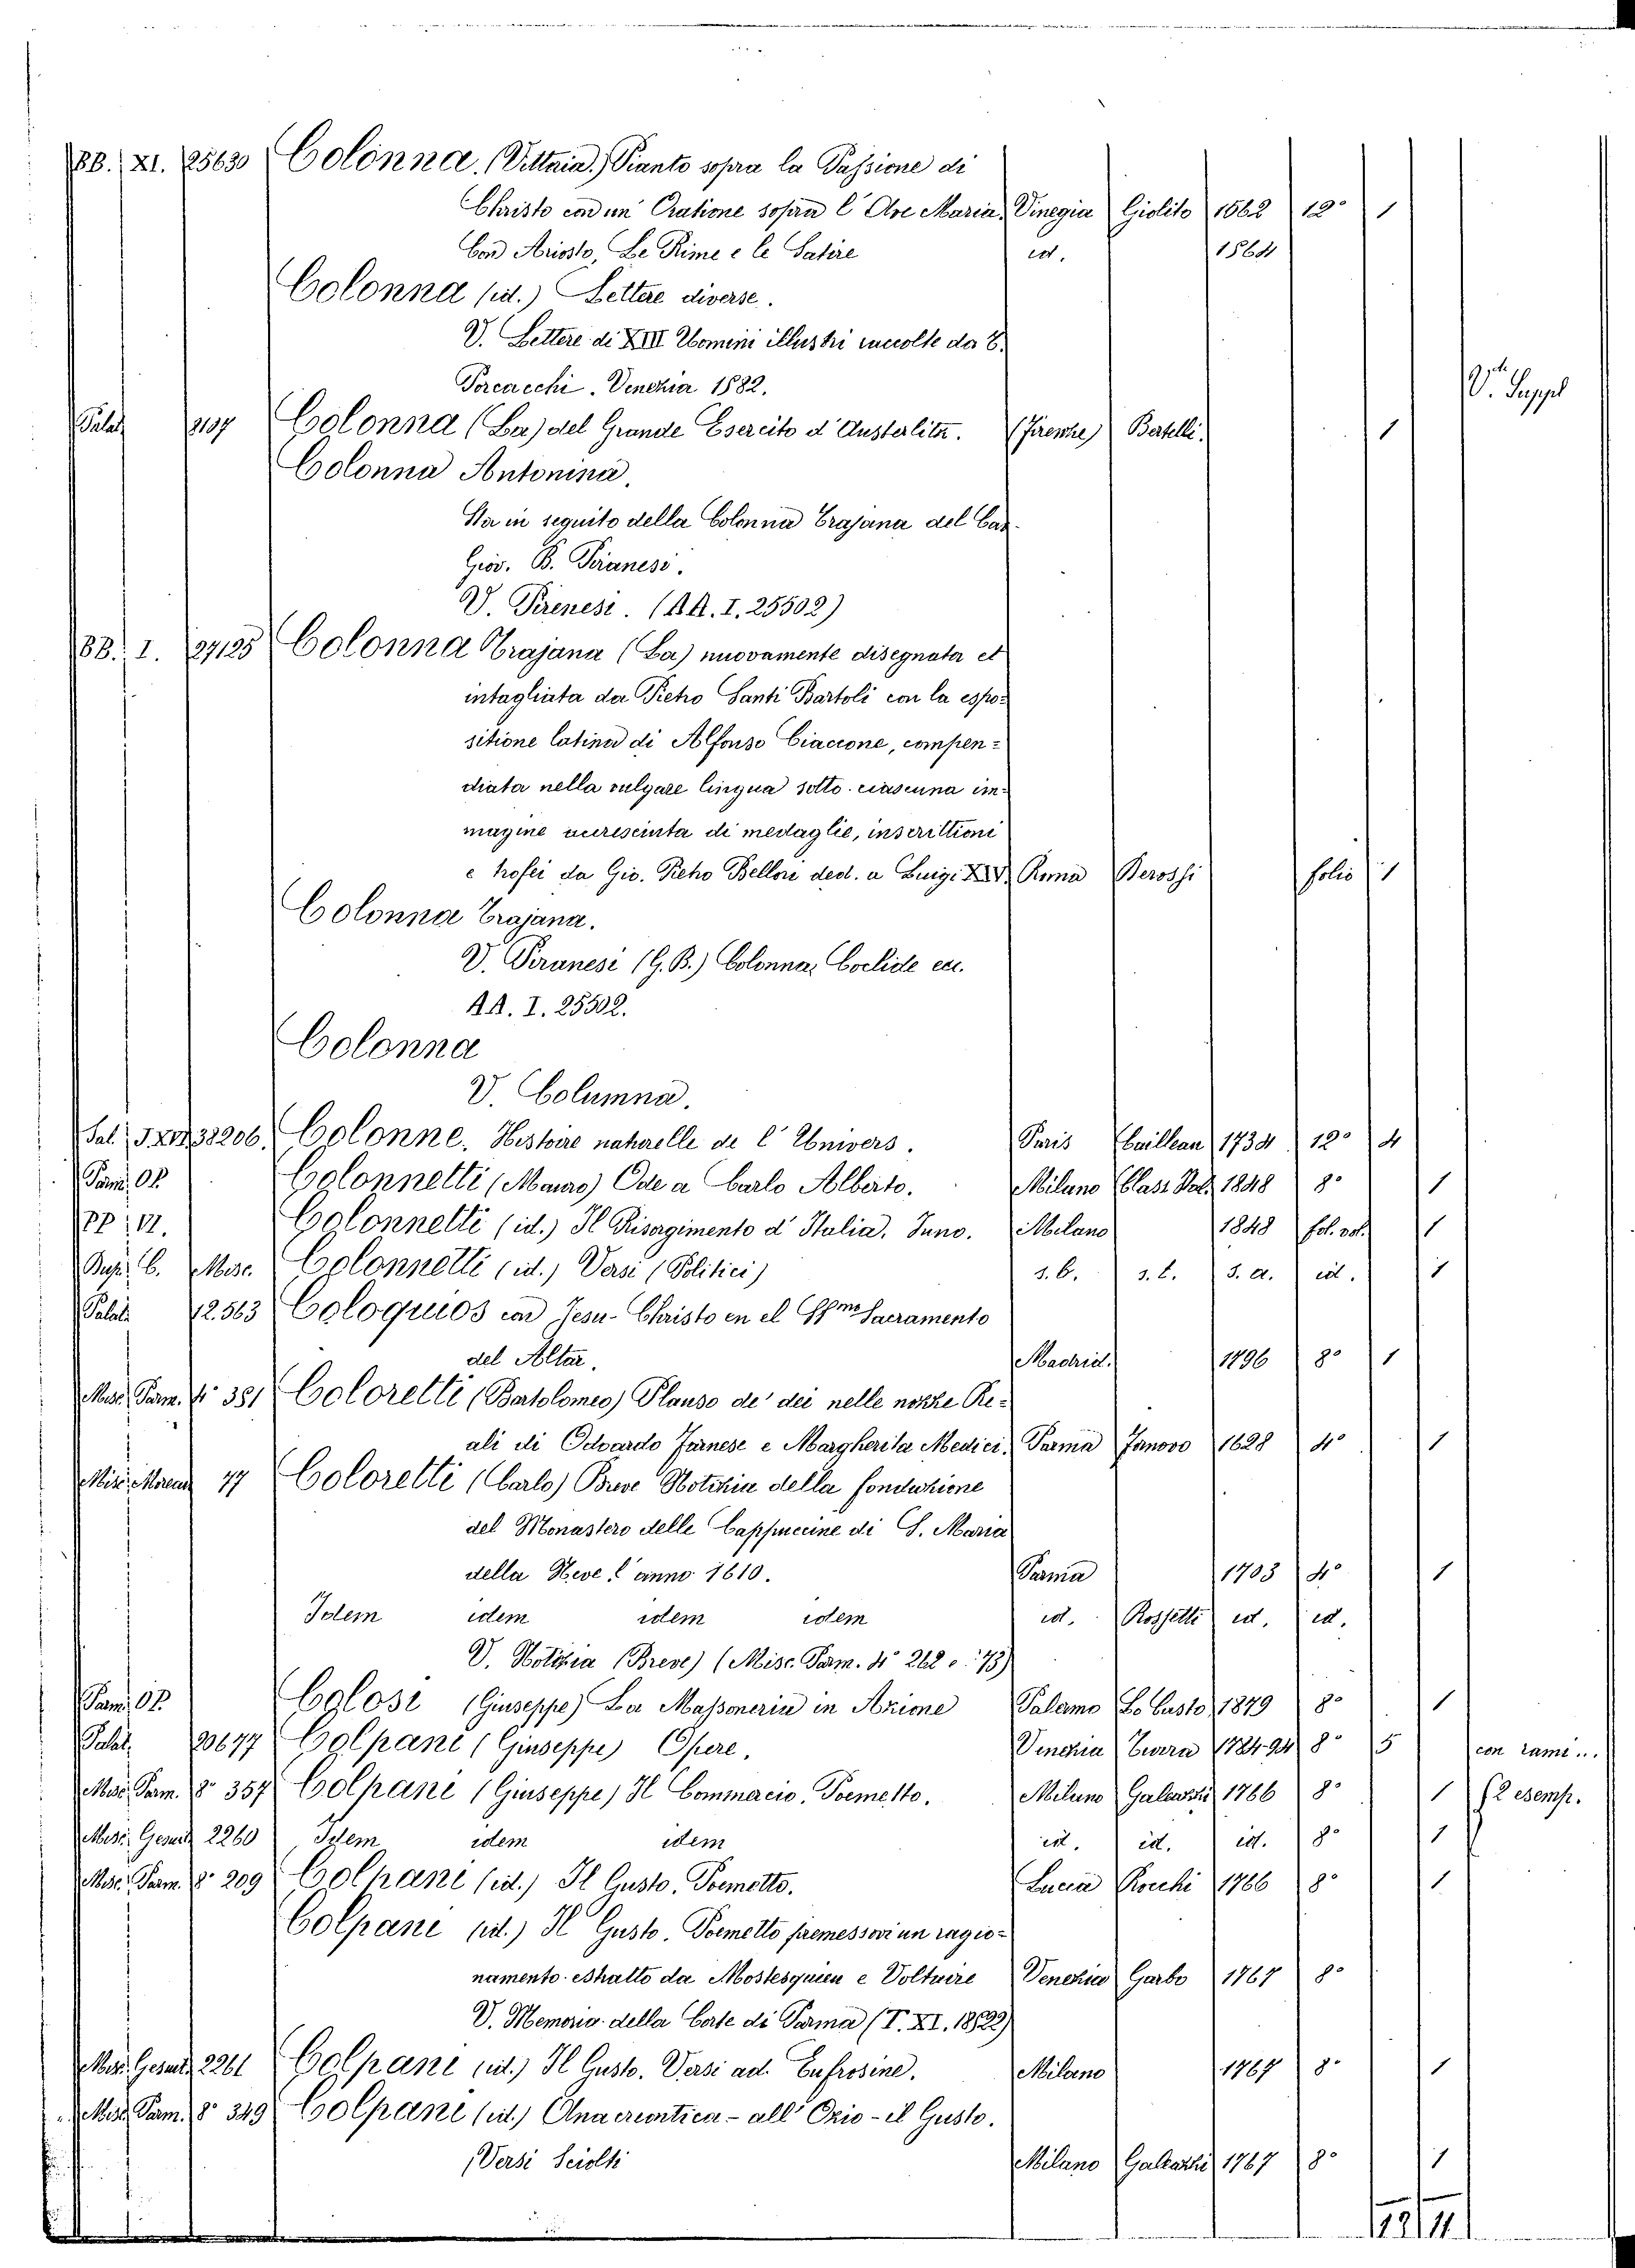 BB. XI. 25630 Colonna (Vittoria) Pianto sopra la Passione di
Christo con un' Oratione sopra l' Ave Maria. Vinegia Giolito 1562 12° 1
Con Ariosto, Le Rime e le Satire id. 1564
Colonna (id.) Lettere diverse.
V. Lettere di XIII Uomini illustri raccolte da T.
Porcacchi. Venezia 1582.
V. Suppl
Palat. Colonna (La) del Grande Esercito d'Austerlitz. (Firenze) Bertelli. 1
Colonna Antonina.
Sta in seguito della Colonna Trajana del Cav.
Giov. B. Piranesi.
V. Pirenesi. (AA. I. 25502)
BB. I. 27125 Colonna Trajana (La) nuovamente disegnata et
intagliata da Pietro Santi Bartoli con la espo=
sitione latina di Alfonso Ciaccone, compen=
diata nella vulgare lingua sotto ciascuna im-
magine accresciuta di medaglie, inscrittioni
e trofei da Gio. Pietro Bellori ded. a Luigi XIV. Roma Derossi folio 1
Colonna Trajana.
V. Piranesi (G. B.) Colonna, Coclide ecc.
AA. I. 25502.
Colonna
V. Columna.
Sal. 38206. Colonne. Histoire naturelle de l' Univers. Paris Cailleau 1734 12° 4
Parm. OP. Colonnetti (Mauro) Ode a Carlo Alberto. Milano 1848 8° 1
PP. VI. Colonnetti (id.) Il Risorgimento d' Italia. Inno. Milano 1848 fol. vol. 1
C. Misc. Colonnetti (id.) Versi (Politici) s. l. s. t. s. a. id. 1
Palat. 12.563 Coloquios con Jesu-Christo en el SSmo Sacramento
del Altar. Madrid. 1796 8° 1
Misc. Parm. 4° 381 Coloretti (Bartolomeo) Plauso de' dei nelle nozze Re=
ali di Odoardo Farnese e Margherita Medici. Parma 1628 4° 1
Misc. Moreau 77 Coloretti (Carlo) Breve Notizia della fondazione
del Monastero delle Cappuccine di S. Maria
della Neve l' anno 1610. Parma 1703 4° 1
Idem idem idem idem id. Rossetti id. id.
V. Notizia (Breve) (Misc. Parm. 4° 262 e 73)
Parm. OP. Colosi (Giuseppe) La Massoneria in Azione Palermo Lo Casto 1879 8° 1
Palat. 20677 Colpani (Giuseppe) Opere. Venezia 1784-94 8° 5 con rami...
Misc. Parm. 8° 357 Colpani (Giuseppe) Il Commercio. Poemetto. Milano Galeazzi 1766 8° 1 (2 esemp.
Misc. Gesuit. 2260 Idem idem idem id. id. id. 8° 1
Misc. Parm. 8° 209 Colpani (id.) Il Gusto. Poemetto. Lucca Rocchi 1766 8° 1
Colpani (id.) Il Gusto. Poemetto premessovi un ragio=
namento estratto da Mostesquieu e Voltaire Venezia Garbo 1767 8°
V. Memorie della Corte di Parma (T. XI. 18522)
Misc. Gesuit. 2261 Colpani (id.) Il Gusto. Versi ad Eufrosine. Milano 1767 8° 1
Misc. Parm. 8° 349 Colpani (id.) Anacreontica - all' Ozio - il Gusto.
Versi Sciolti Milano Galeazzi 1767 8° 1